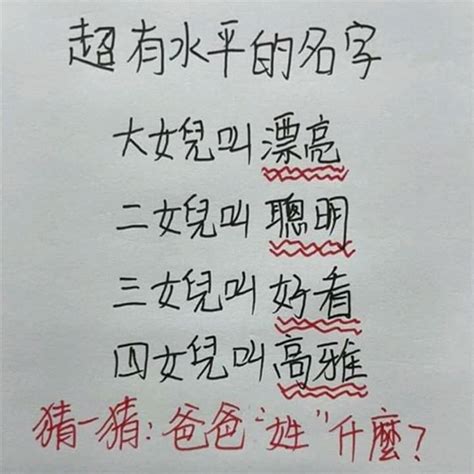 超有水平的名字
大女兒叫漂亮
二女兒叫聰明
三女兒叫好看
四女兒叫高雅
猜一猜:爸爸"姓"什麼?